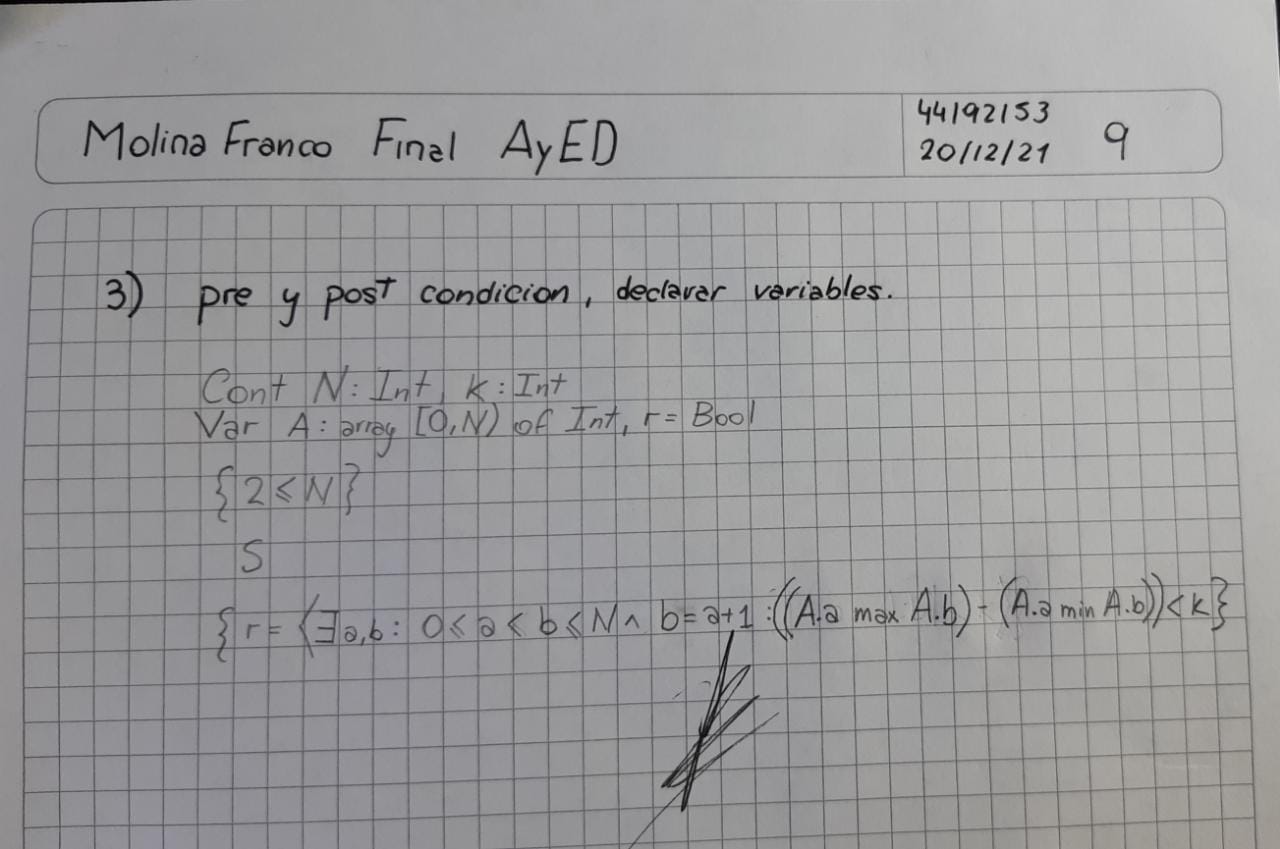 Molina Franco Final AyED
44192153
20/12/21
9
3) pre y post condicion, declarar variables.
Cont N: Int, k: Int
Var A: array [0,N) of Int, r= Bool
{2≤N}
S
{r= ⟨∃a,b: 0≤a<b≤N ∧ b=a+1 :((A.a max A.b) - (A.a min A.b))<k}